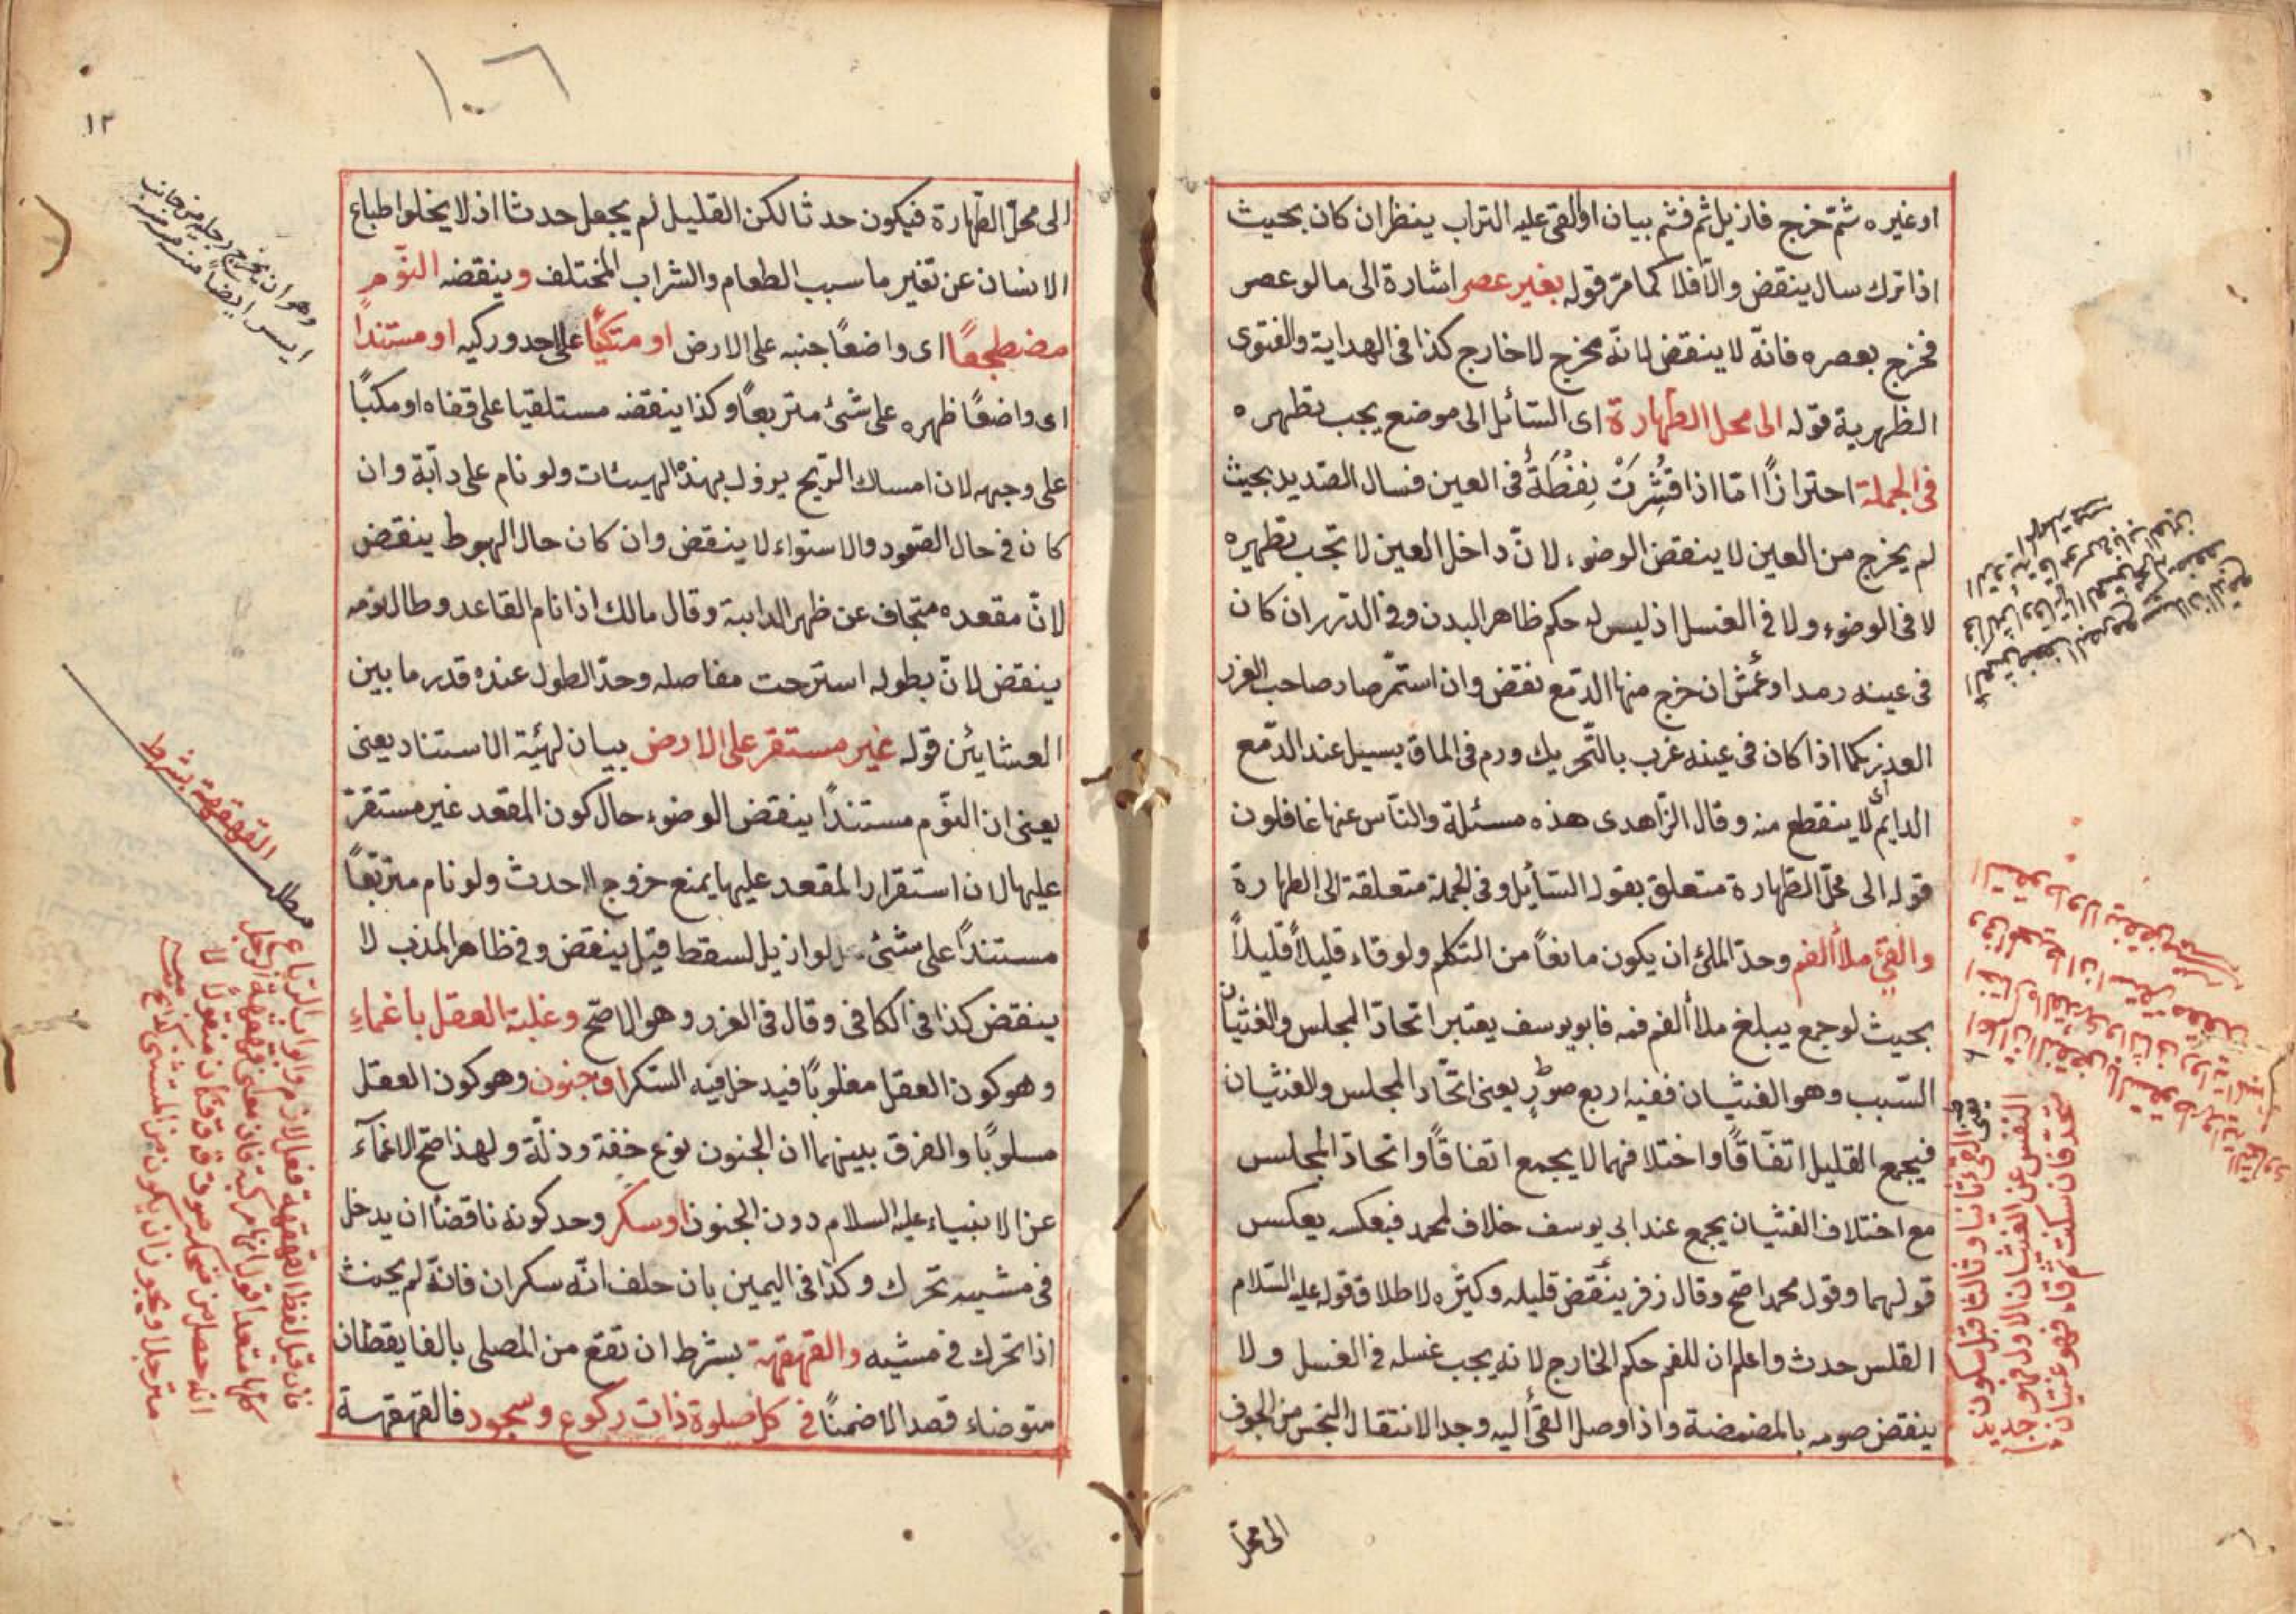 او غيره ثم خرج فازيل ثم فثم بيان او القى عليه التراب ينظر ان كان بحيث
اذا ترك سال ينقض والّا فلا كما مرّ قوله بغير عصر اشارة الى ما لو عصر
فخرج بعصره فانّه لا ينقض لانّه مخرج لا خارج كذا فى الهداية والفتوى
الظهرية قوله الى محل الطهارة اى السائل الى موضع يجب تطهره
فى الجملة احترازًا امّا اذا قُشِرَتْ نِفْطَةٌ فى العين فسال الصديد بحيث
لم يخرج من العين لا ينقض الوضوء لانّ داخل العين لا تجب تطهيره
لا فى الوضوء ولا فى الغسل اذ ليس له حكم ظاهر البدن وفى الدرر ان كان
فى عينه رمد او عمش ان خرج منها الدّمع نقض وان استمرّ صار صاحب الغرر
العذر كما اذا كان فى عينه غرب بالتّحريك ورم فى الماق يسيل عند الدّمع
الدايم لا ينقطع منه وقال الزاهدى هذه مسئلة والنّاس عنها غافلون
قوله الى محلّ الطّهارة متعلق بقوله السّائل وفى الجملة متعلقة الى الطهارة
والقئ ملأ الفم وحدّ الملئ ان يكون مانعًا من التكلم ولو قاء قليلاً قليلاً
بحيث لو جمع يبلغ ملأ الفم فمه فابو يوسف يعتبر اتحاد المجلس والغثيان
السّبب وهو الغثيان ففيه اربع صوَرٍ يعنى اتّحاد المجلس والغثيان
فيجمع القليل اتفّاقًا واختلافهما لا يجمع اتفاقًا واتحاد المجلس
مع اختلاف الغثيان يجمع عند ابى يوسف خلاف لمحمد فبعكسه يعكس
قولهما وقول محمد اصح وقال زفر ينقض قليله وكثره لاطلاق قوله عليه السّلام
القلس حدث واعلم ان للفم حكم الخارج لانه يجب غسله فى الغسل ولا
ينقض صومه بالمضمضة واذا وصل القئ اليه وجد الانتقال النجس من الجوف
الى محلّ
القئ ثانيا وثالثا قبل سكون
النفس عن الغثيان الاول فهو
متحد فان سكنت ثم قاء فهو غثيان
١٠٦
١٢
الى محلّ الطّهارة فيكون حدثا لكن القليل لم يجعل حدثا اذ لا يخلوا طباع
الانسان عن تغير ما سبب الطعام والشراب المختلف وينقضه النّوم
مضطجعًا اى واضعًا جنبه على الارض او متكئًا على احد وركيه او مستندًا
اى واضعًا ظهره على شئ متربعًا وكذا ينقضه مستلقيا على قفاه او مكبًا
على وجهه لان امساك الرّيح يزول بهذه الهيئات ولو نام على دآبة وان
كان فى حال الصّعود والاستواء لا ينقض وان كان حال الهبوط ينقض
لانّ مقعده متجاف عن ظهر الدابة وقال مالك اذا نام القاعد وطال نومه
ينقض لانّ بطوله استرحت مفاصله وحدّ الطول عنده قدر ما بين
العشايئن قوله غير مستقر على الارض بيان لهيئة الاستناد يعنى
يعنى ان النّوم مستندًا ينقض الوضوء حال كون المقعد غير مستقرّ
عليها لان استقرار المقعد عليها يمنع خروج الحدث ولو نام متربّعًا
مستندًا على شئ لو ازيل لسقط قيل ينقض وفى ظاهر المذهب لا
ينقض كذا فى الكافى وقال فى الغرر وهو الاصحّ وغلبة العقل باغماءِ
وهو كون العقل مغلوبًا فيدخل فيه السّكر او جنون وهو كون العقل
مسلوبًا والفرق بينهما ان الجنون نوع خفة وذلّة ولهذا صحّ الاغمآء
عن الانبياء عليه السلام دون الجنون او سكر وحد كونه ناقضًا ان يدخل
فى مشيه تحرك وكذا فى اليمين بان حلف انّه سكران فانّه لم يحنث
اذا تحرك فى مشيه والقهقهة بشرط ان تقع من المصلى بالغا يقظان
متوضاء قصد الاضمنًا فى كل صلوة ذات ركوع وسجود فالقهقهة
وهو ان يخرج رجليه من جانب
ايسر ايضًا
مطلب القهقهة بشرط
فان قيل لفظ القهقهة فعل لازم وابواب الرباعى
كلها متعد اقول انها مركبة فان معنى قهقهة الرجل